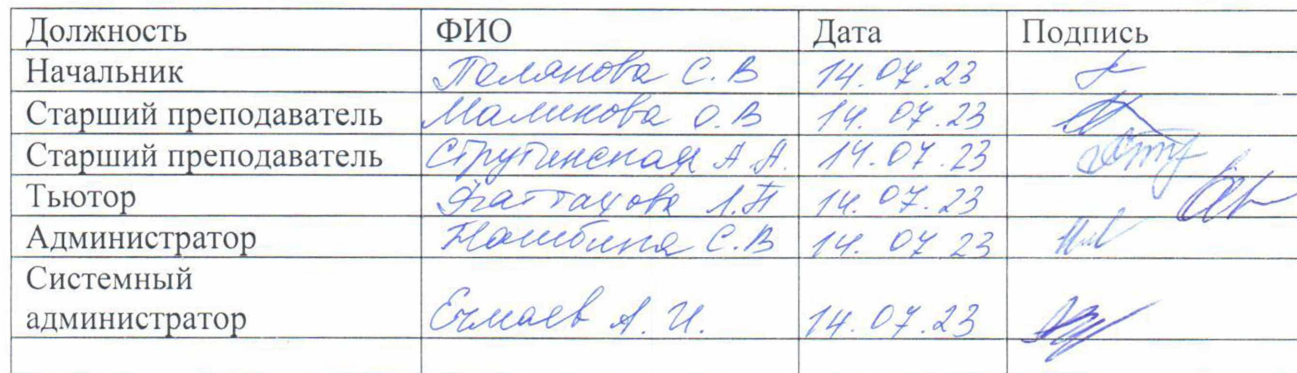 Должность ФИО Дата Подпись
Начальник С.В 14.07.23
Старший преподаватель Маликова О.В 14.07.23
Старший преподаватель Струтинская А.А. 14.07.23
Тьютор Фаттахова Л.П 14.07.23
Администратор С.В 14.07.23
Системный
администратор А.И. 14.07.23